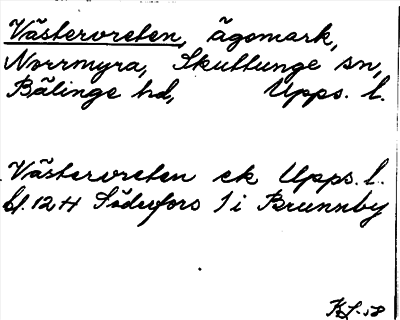 Västervreten, ägomark,
Norrmyra, Skuttunge sn,
Bälinge hd, Upps. l.
Västervreten ek Upps. l.
bl. 12 H Söderfors 1 i Brunnby
KL-58